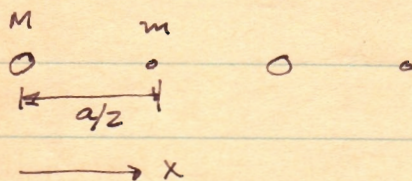 M m
a/2
x